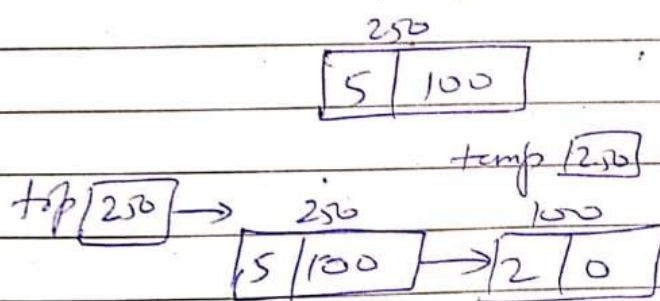 250
5 100
temp 250
top 250 → 250 100
5 100 → 2 0